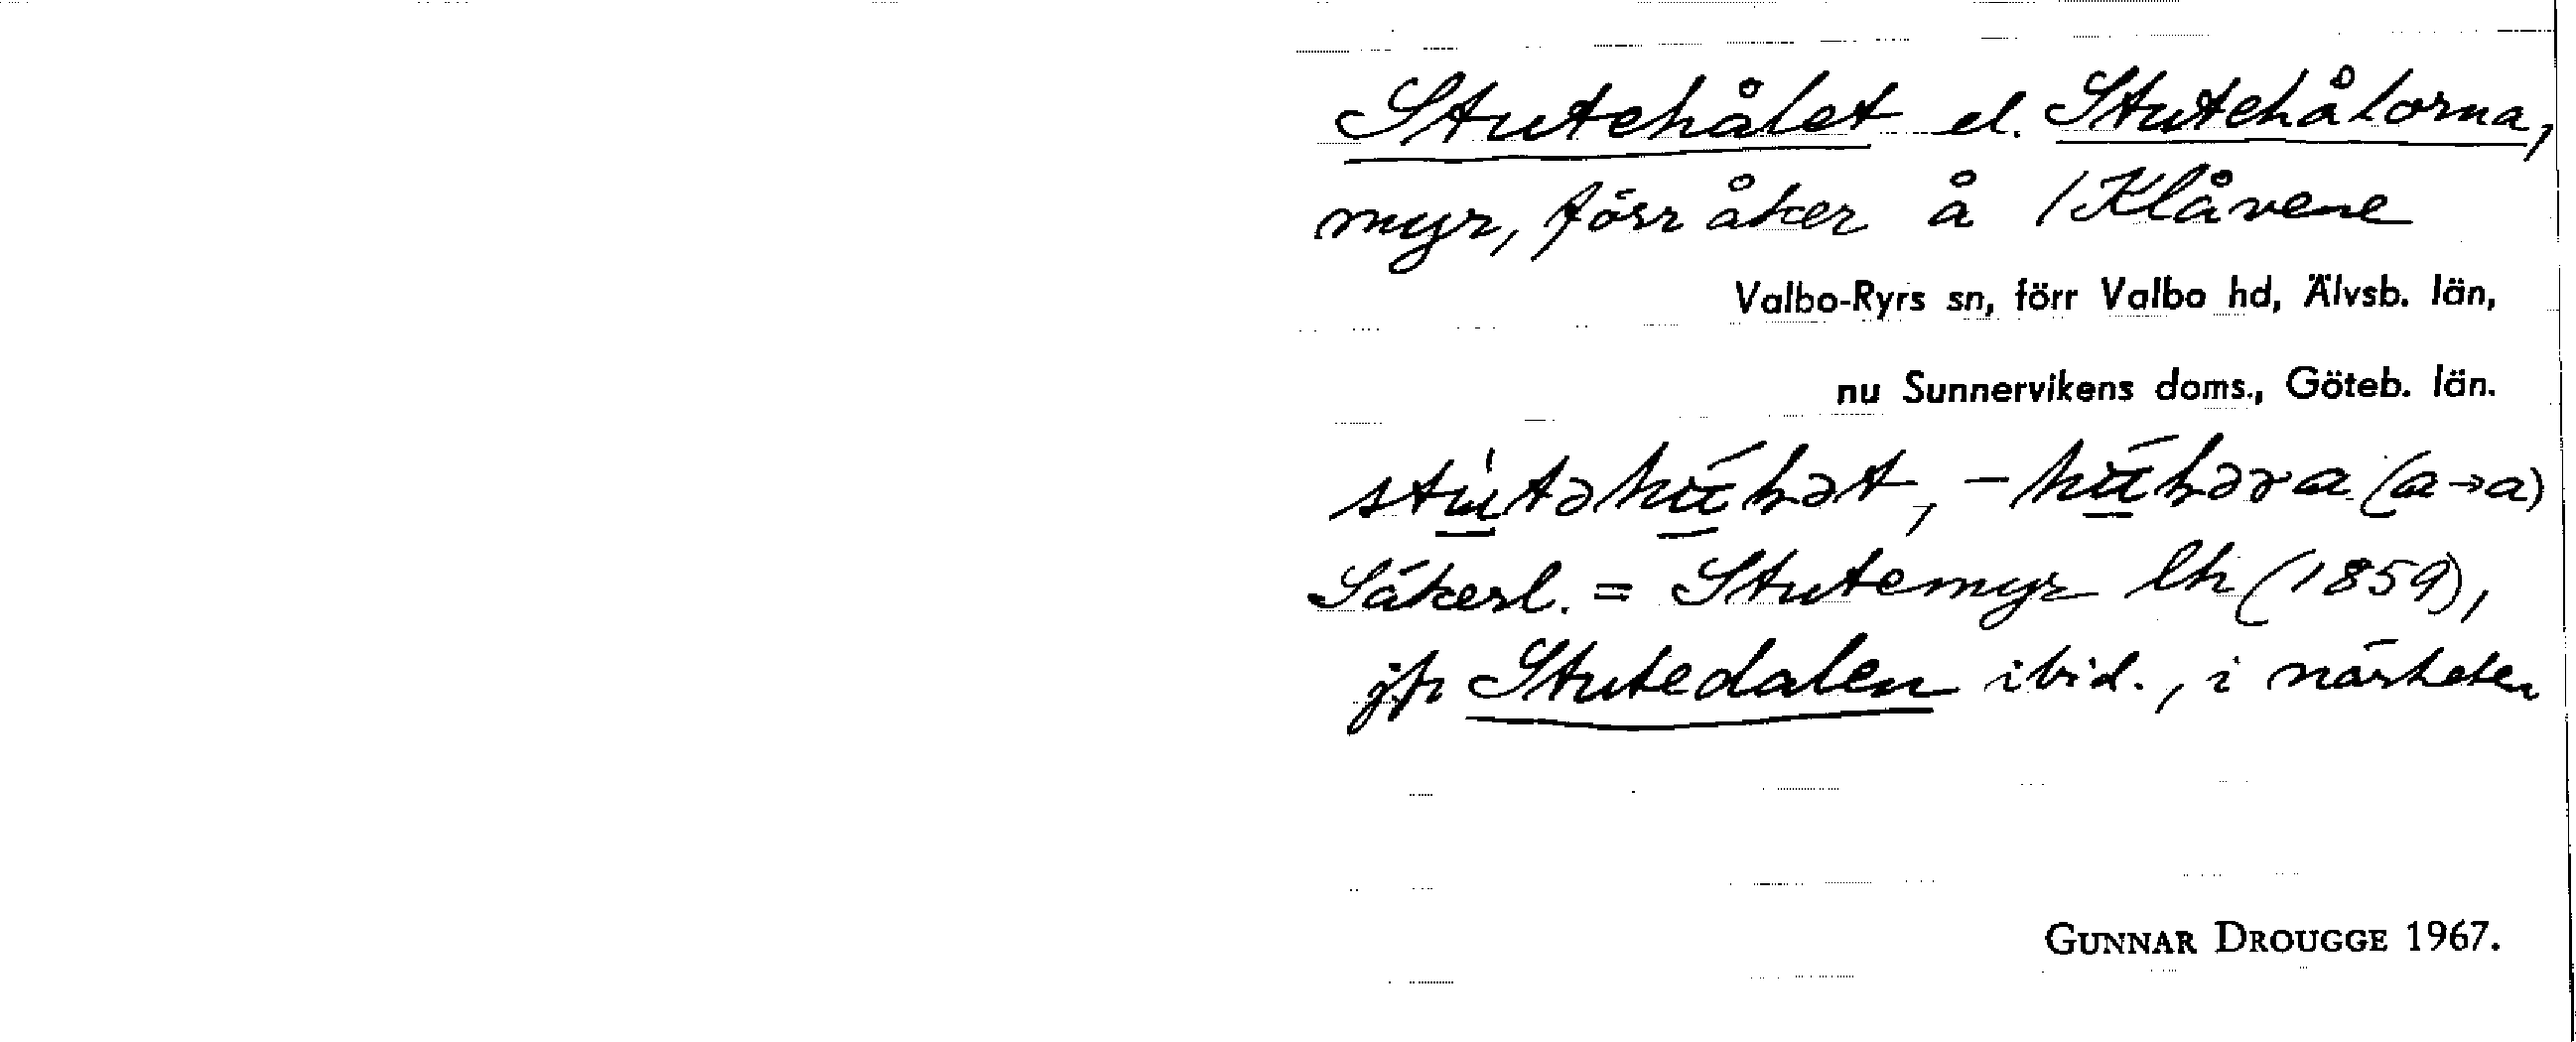 Stutehålet el. Stutehålorna,
myr, förr åker å /Klåvene
Valbo-Ryrs sn, förr Valbo hd, Älvsb. län,
nu Sunnervikens doms., Göteb. län.
Säkerl. = Stutemyr lh (1859),
jfr Stutedalen ibid., i närheten
GUNNAR DROUGGE 1967.